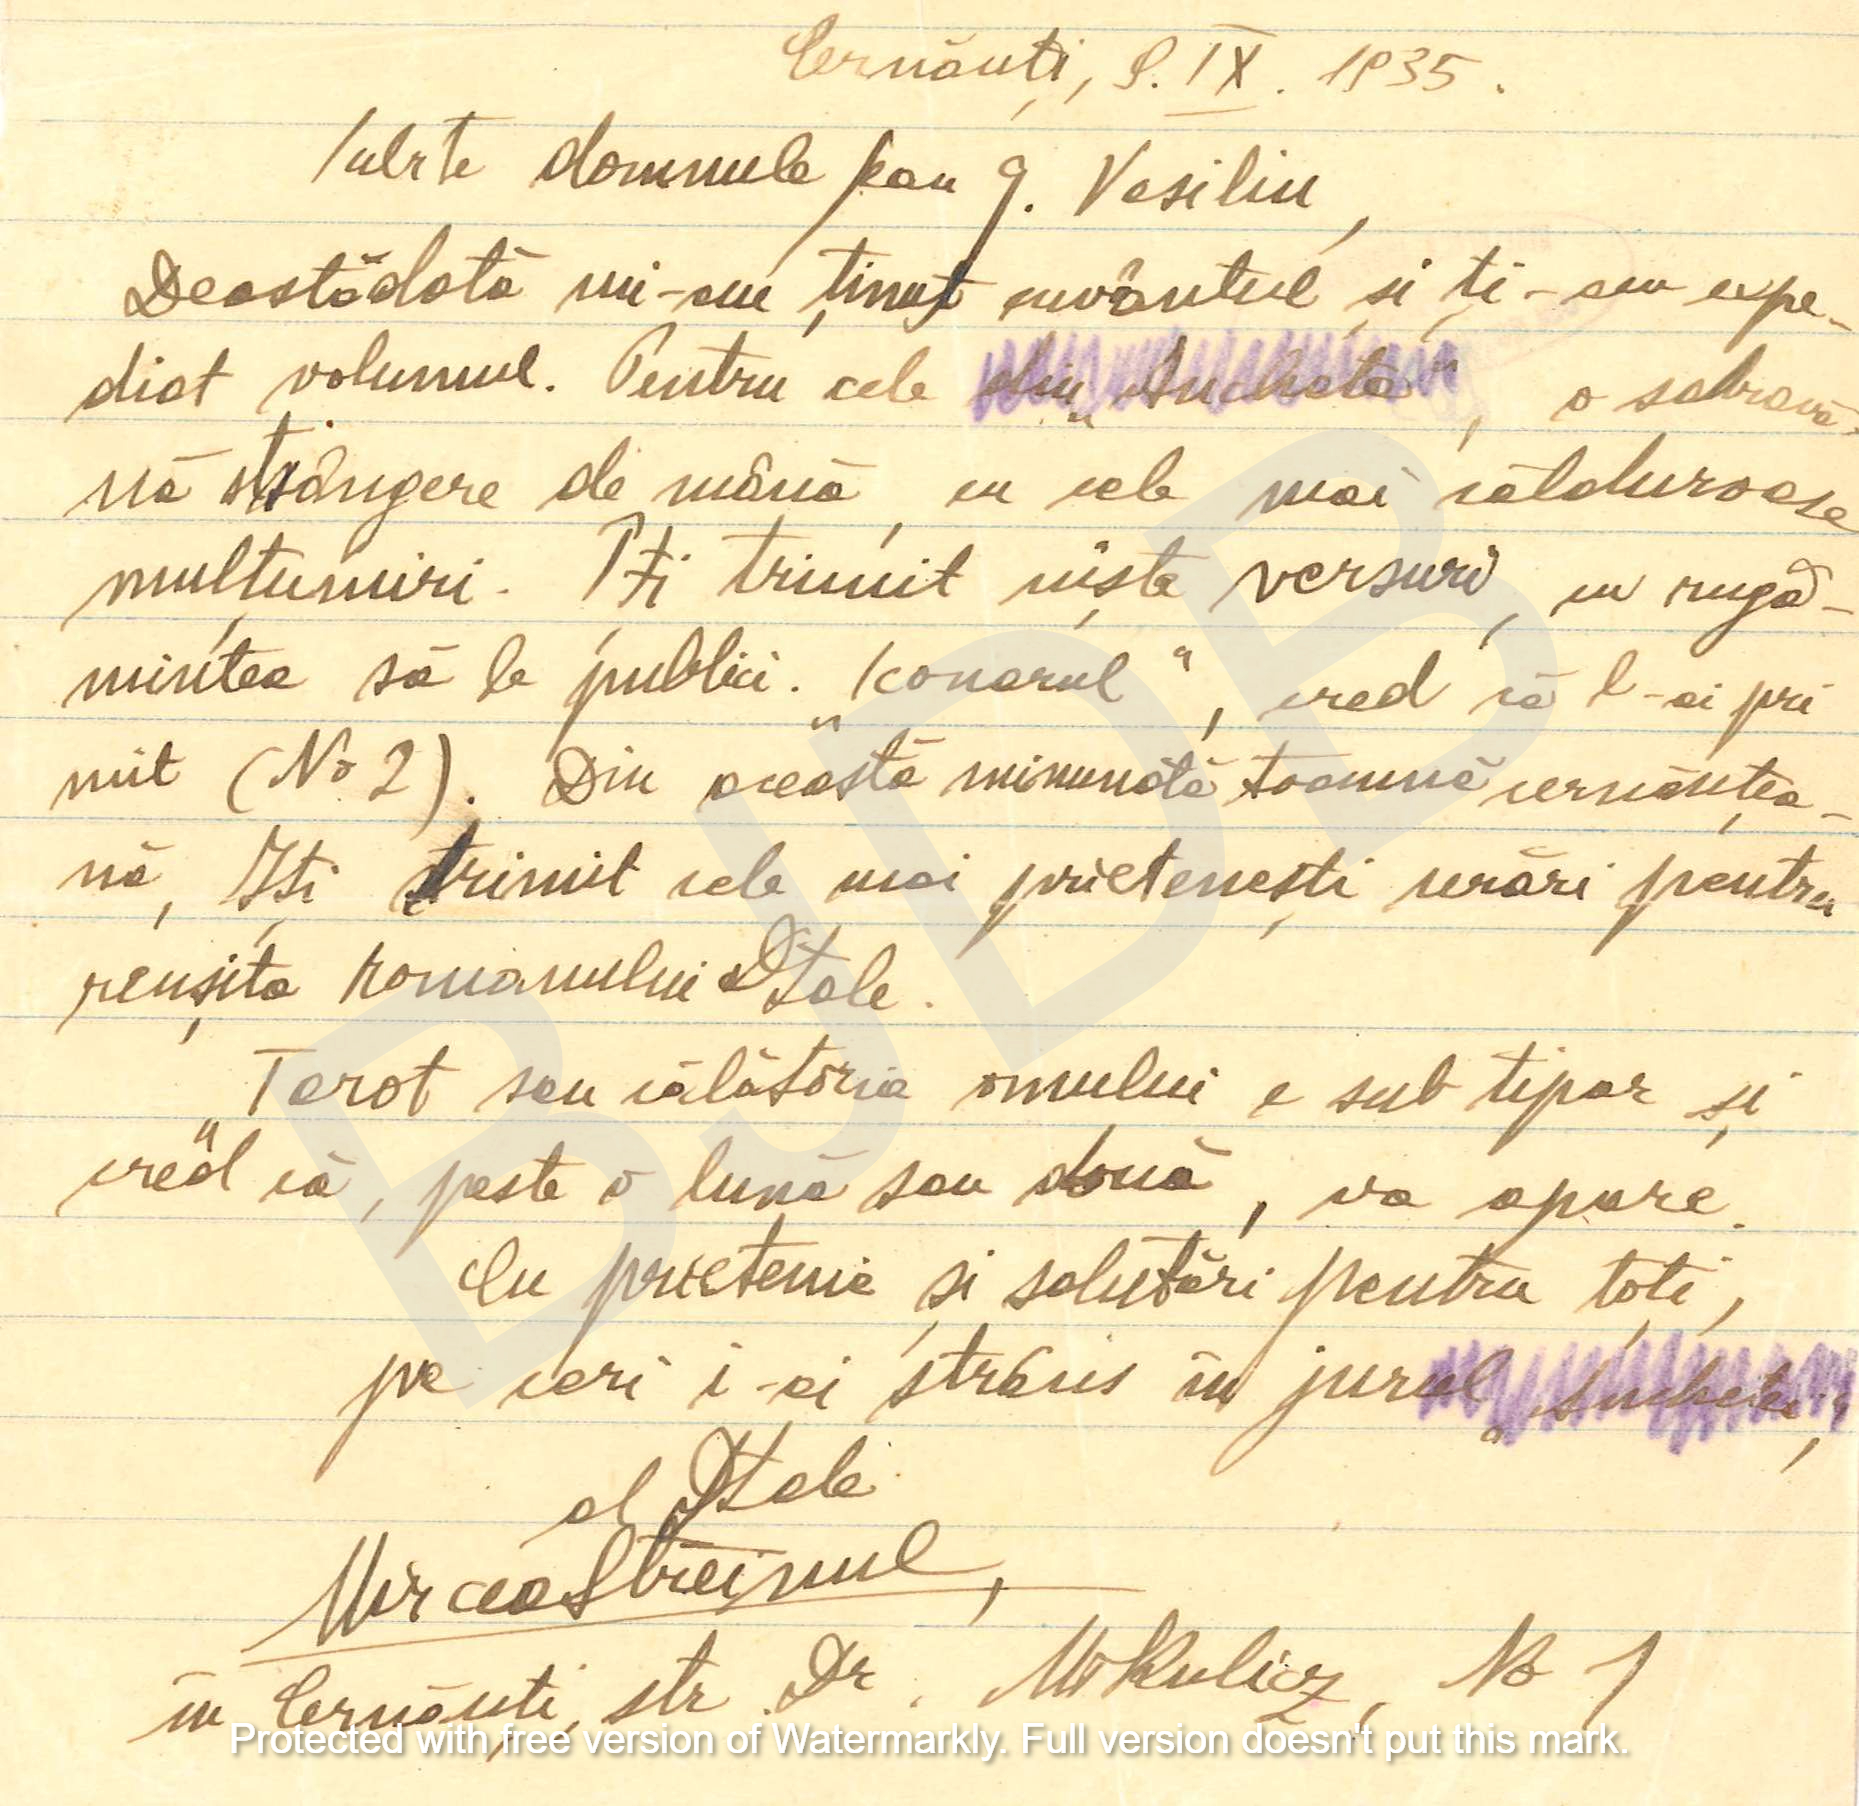 Cernăuți, 9. IX. 1935.
Iubite domnule pan G. Vasiliu,
Deastădată mi-am ținut cuvântul și ți-am expe-
diat volumul. Pentru cele din „Ancheta", o zdravă-
nă strângere de mână, cu cele mai călduroase
mulțumiri. Iți trimit niște versuri, cu rugă-
mintea să le publici. „Iconarul", cred că l-ai pri
mit (No 2). Din această minunată toamnă cernăuțea-
nă, Iți trimit cele mai prietenești urări pentru
reușita romanului Dtale.
„Tarot sau călătoria omului e sub tipar și
cred că, peste o lună sau două, va apare.
Cu prietenie și salutări pentru toți,
pe cari i-ai strâns în jurul „Anchetei",
al Dtale
Mircea Streinul,
în Cernăuți, str. Dr. Mikulicz, No 1
BJDB
Protected with free version of Watermarkly. Full version doesn't put this mark.